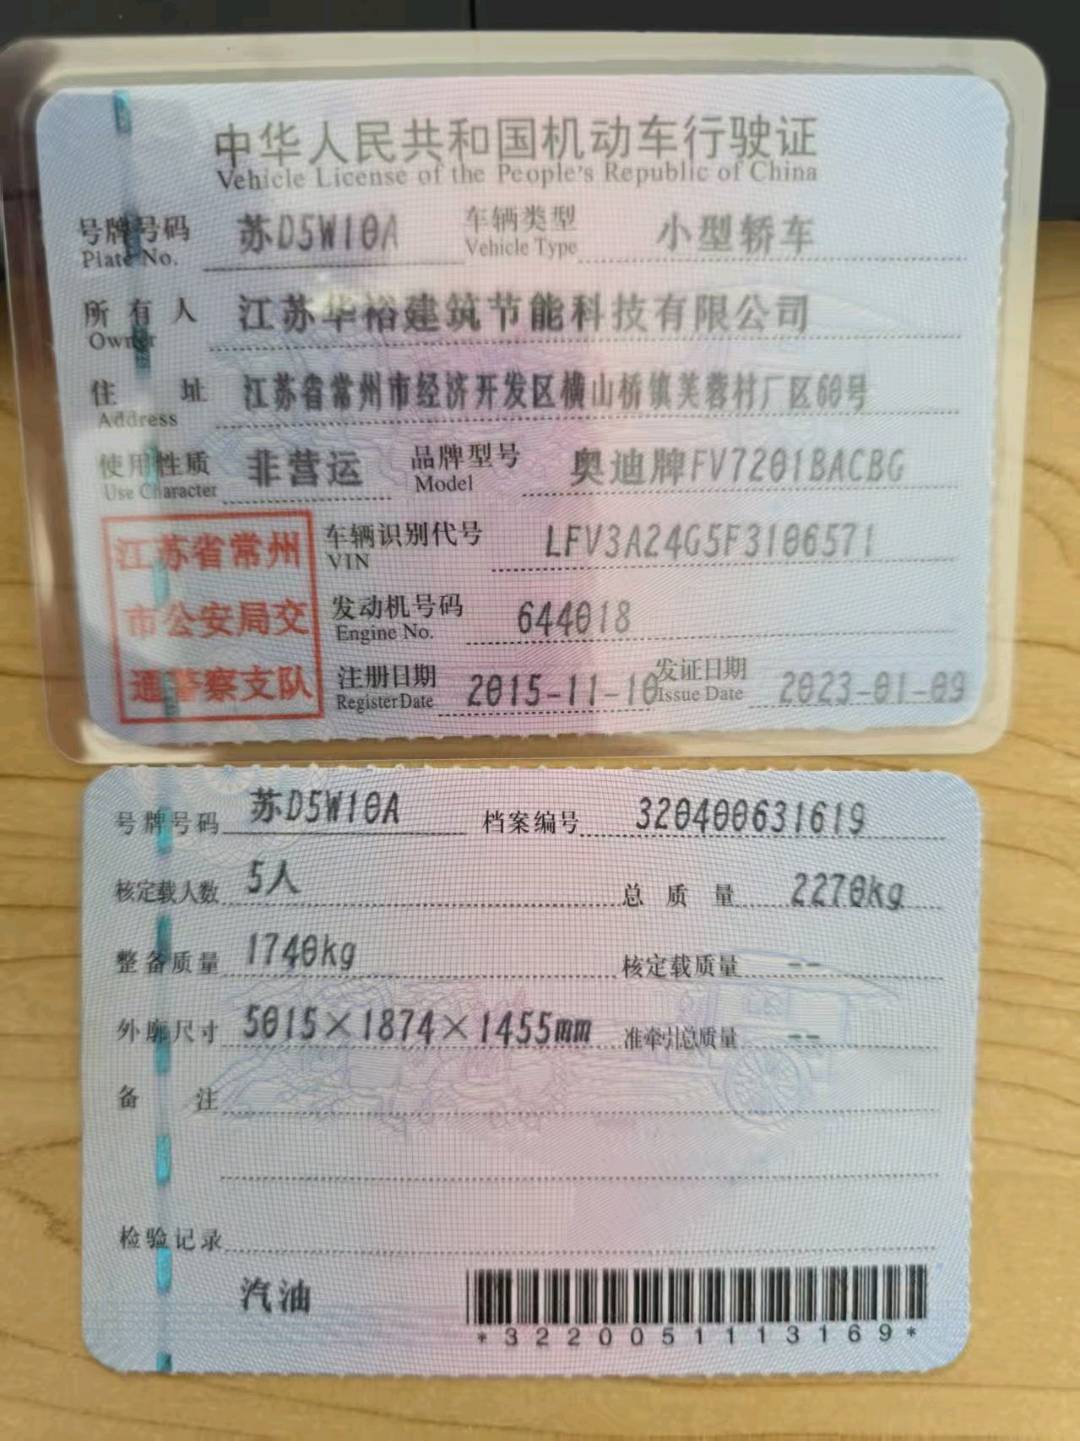 中华人民共和国机动车行驶证
Vehicle License of the People's Republic of China
号牌号码 苏D5W10A 车辆类型 小型轿车
Plate No. Vehicle Type
所有人 江苏华裕建筑节能科技有限公司
Owner
住址 江苏省常州市经济开发区横山桥镇芙蓉村厂区60号
Address
使用性质 非营运 品牌型号 奥迪牌FV7201BACBG
Use Character Model
江苏省常州
市公安局交
通警察支队
车辆识别代号 LFV3A24G5F3106571
VIN
发动机号码 644018
Engine No.
注册日期 2015-11-10 发证日期 2023-01-09
Register Date Issue Date
号牌号码 苏D5W10A 档案编号 320400631619
核定载人数 5人 总质量 2270kg
整备质量 1740kg 核定载质量 --
外廓尺寸 5015×1874×1455mm 准牵引总质量 --
备注
检验记录
汽油
*3220051113169*